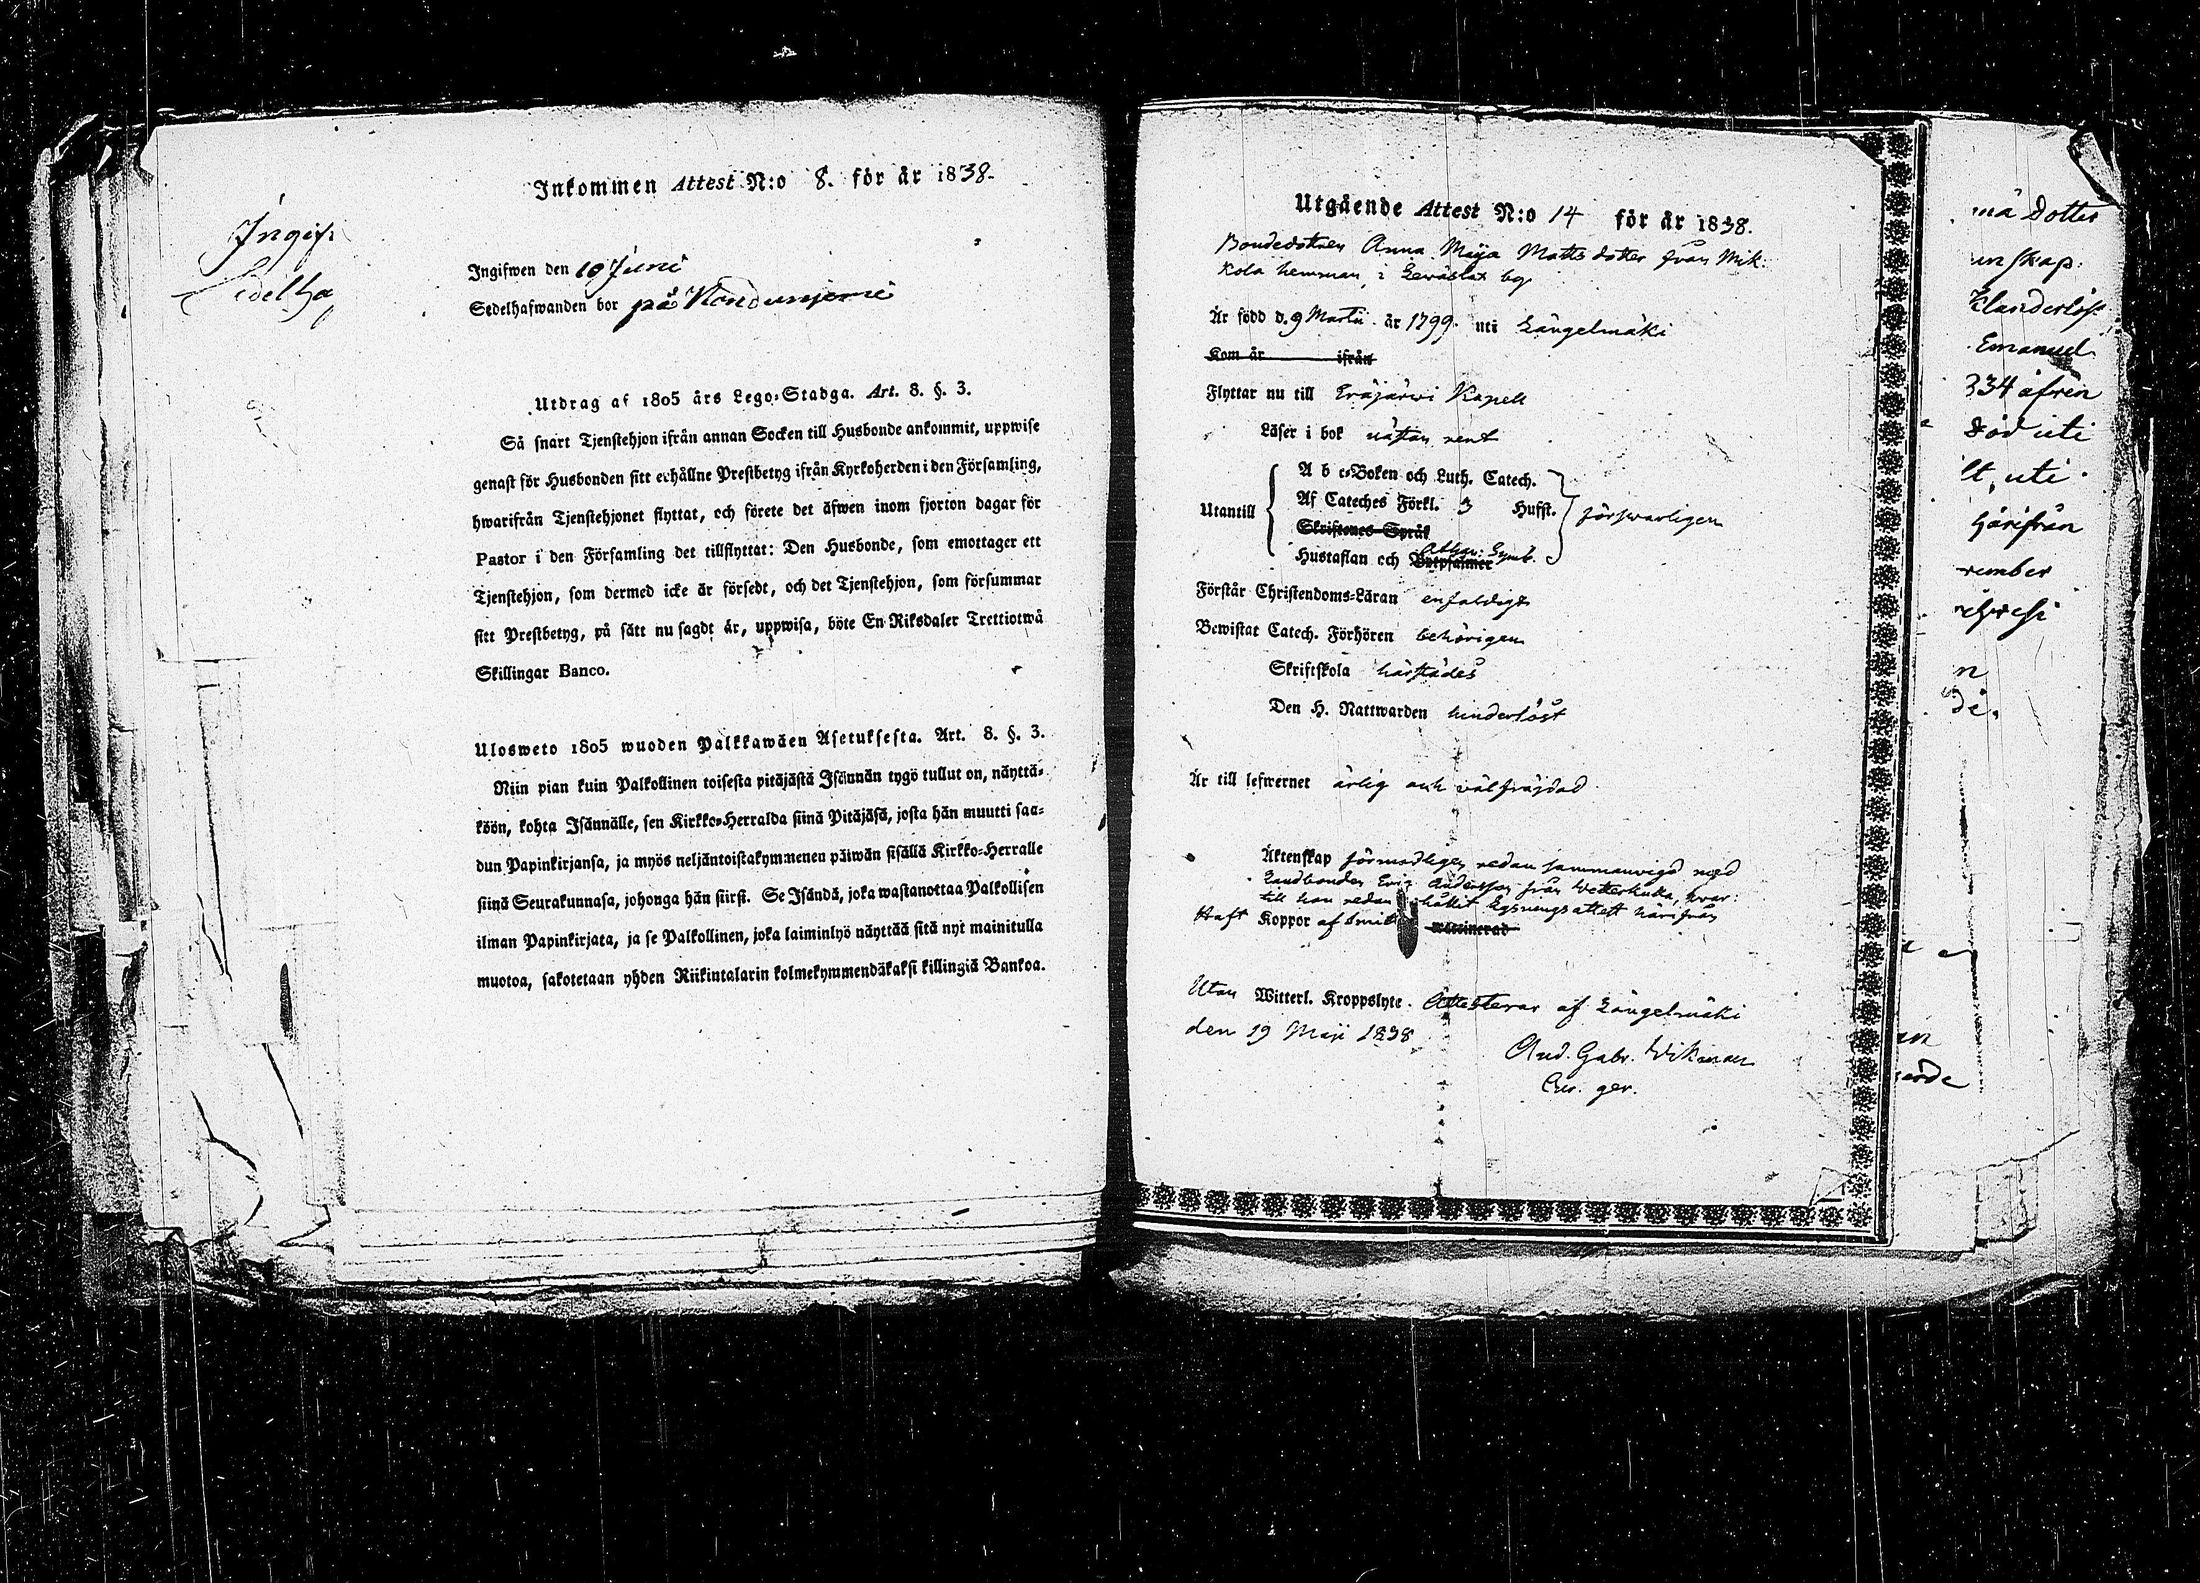 Ingif
Sedelha
Inkommen Attest N:o 8. för år 1838.
Ingifwen den 10 Juni
Sedelhafwanden bor på
Utdrag af 1805 års Lego-Stadga. Art. 8. §. 3.
Så snart Tjenstehjon ifrån annan Socken till Husbonde ankommit, uppwise
genast för Husbonden sitt erhållne Prestbetyg ifrån Kyrkoherden i den Församling,
hwarifrån Tjenstehjonet flyttat, och förete det äfwen inom fjorton dagar för
Pastor i den Församling det tillflyttat: Den Husbonde, som emottager ett
Tjenstehjon, som dermed icke är försedt, och det Tjenstehjon, som försummar
sitt Prestbetyg, på sätt nu sagdt är, uppwisa, böte En Riksdaler Trettiotwå
Skillingar Banco.
Ulosweto 1805 wuoden Palkkawäen Asetuksesta. Art. 8. §. 3.
Niin pian kuin Palkollinen toisesta pitäjästä Isännän tygö tullut on, näyttä-
köön, kohta Isännälle, sen Kirkko-Herralda siinä Pitäjäsä, josta hän muutti saa-
dun Papinkirjansa, ja myös neljäntoistakymmenen päiwän sisällä Kirkko-Herralle
siinä Seurakunnasa, johonga hän siirsi. Se Isändä, joka wastanottaa Palkollisen
ilman Papinkirjata, ja se Palkollinen, joka laiminlyö näyttää sitä nyt mainitulla
muotoa, sakotetaan yhden Riikintalarin kolmekymmendäkaksi killingiä Bankoa.
Utgående Attest N:o 14 för år 1838.
Bondedottren Anna Maja Matts dotter från Mik:
kola hemman i by
Är född d. 9 Martii år 1799. uti Längelmäki
Kom år ifrån
Flyttar nu till Eräjärwi Kapell
Läser i bok nästan rent
A b c-Boken och Luth. Catech.
Utantill Af Cateches Förkl. 3 Hufst. förswarligen
Skriftenes Språk
Hustaflan och Botpsalmer Athan: Symb.
Förstår Christendoms-Läran enfaldigt
Bewistat Catech. Förhören behörigen
Skriftskola härstädes
Den H. Nattwarden hinderlöst
Är till lefwernet ärlig och välfräjdad
Äktenskap förmodligen redan sammanvigd med
Landbonden Eric Andersson från Wetterkulla, hvar:
till hon redan Lysningsattest härifrån
Haft Koppor af wattinerad
Utan Witterl. Kroppslyte. Attesterar af Längelmäki
den 19 Maji 1838
And. Gabr. Wikman
Cur. ger.
må dotter
unskap.
Klanderlös
Emanuel
334 åfven
död uti
lt, uti
härifrån
rember
n
di.